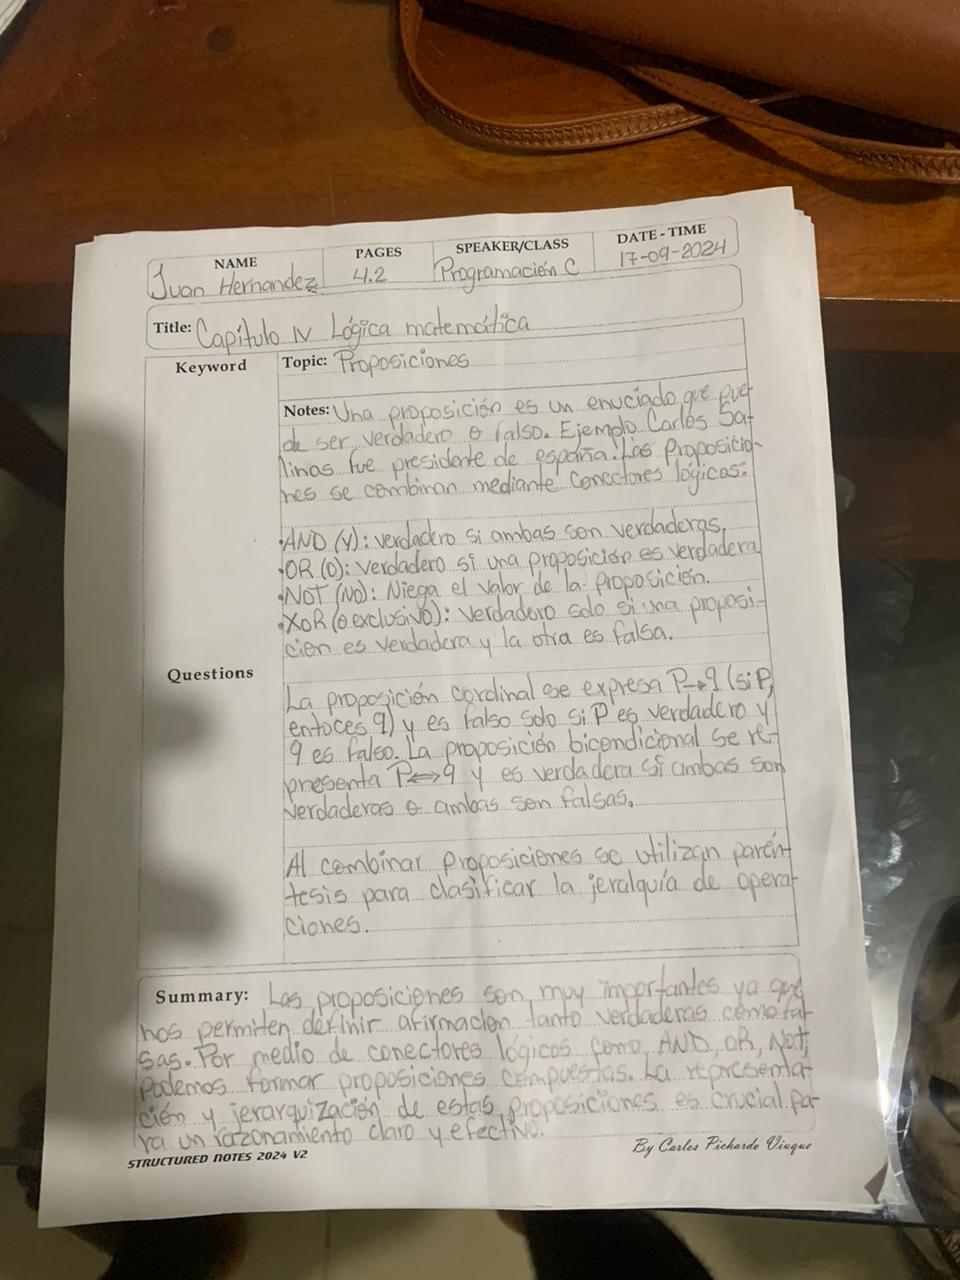 NAME PAGES SPEAKER/CLASS DATE - TIME
Juan Hernandez 4.2 Programación C 17-09-2024
Title: Capitulo IV Lógica matemática
Keyword Topic: Proposiciones
Notes: Una proposición es un enuciado que pue-
de ser verdadero o falso. Ejemplo Carlos Sa-
linas fue presidente de españa. Las Proposicio-
nes se combinan mediante conectores lógicos:
•AND (Y): verdadero si ambas son verdaderas.
•OR (O): verdadero si una proposición es verdadera
•NOT (No): Niega el valor de la proposición.
•XOR (o exclusivo): verdadero solo si una proposi-
cion es verdadera y la otra es falsa.
Questions
La proposición cordinal se expresa P→q (si P,
entoces q) y es falso solo si P es verdadero y
q es falso. La proposición bicondicional se re-
presenta P↔q y es verdadera si ambas son
verdaderas o ambas son falsas.
Al combinar proposiciones se utilizan parén-
tesis para clasificar la jeralquía de opera-
ciones.
Summary: Las proposiciones son muy importantes ya que
nos permiten definir afirmacion tanto verdaderas como fal-
sas. Por medio de conectores lógicos como, AND, OR, Not,
Podemos formar proposiciones compuestas. La representa-
ción y jerarquización de estas proposiciones es crucial pa-
ra un razonamiento claro y efectivo.
STRUCTURED NOTES 2024 V2 By Carlos Pichardo Viuque